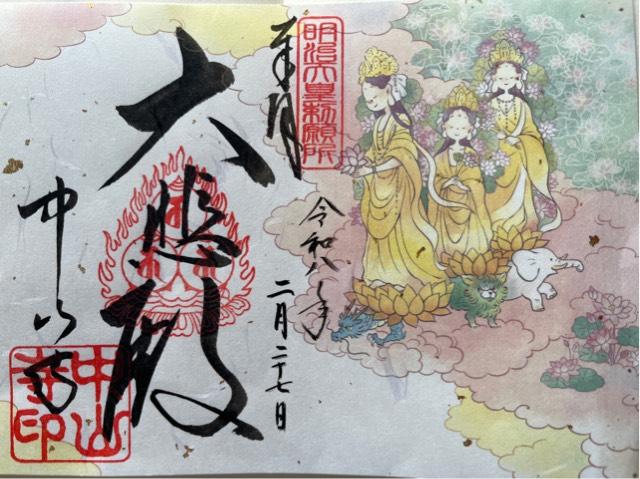 明治天皇勅願所
奉拝
令和八年
二月二十七日
大悲殿
中山寺
中山寺印